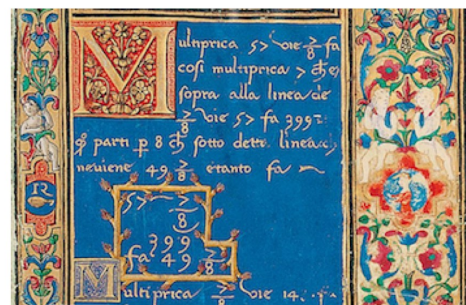 Multiprica 57 vie 7/8 fa
cosi multiprica 7 ch e
sopra alla linea de
7/8 vie 57 fa 399
parti p 8 ch sotto dette linea
neviene 49 7/8 etanto fa
57 7/8
399
fa 49 7/8
Multiprica 7/8 vie 14